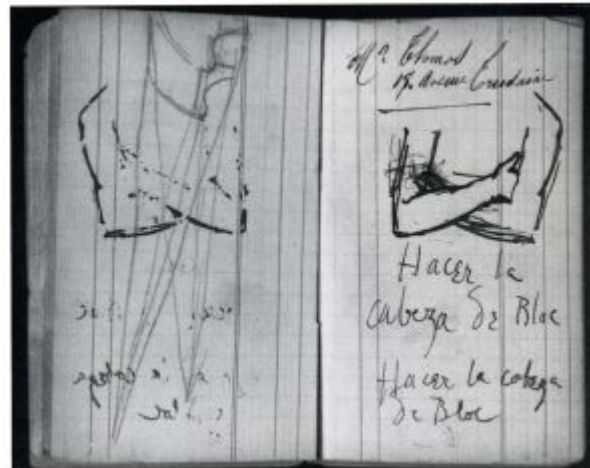 Mr Thomas
17. Avenue Trudaine
Hacer la
cabeza de Bloc
Hacer la cabeza
de Bloc